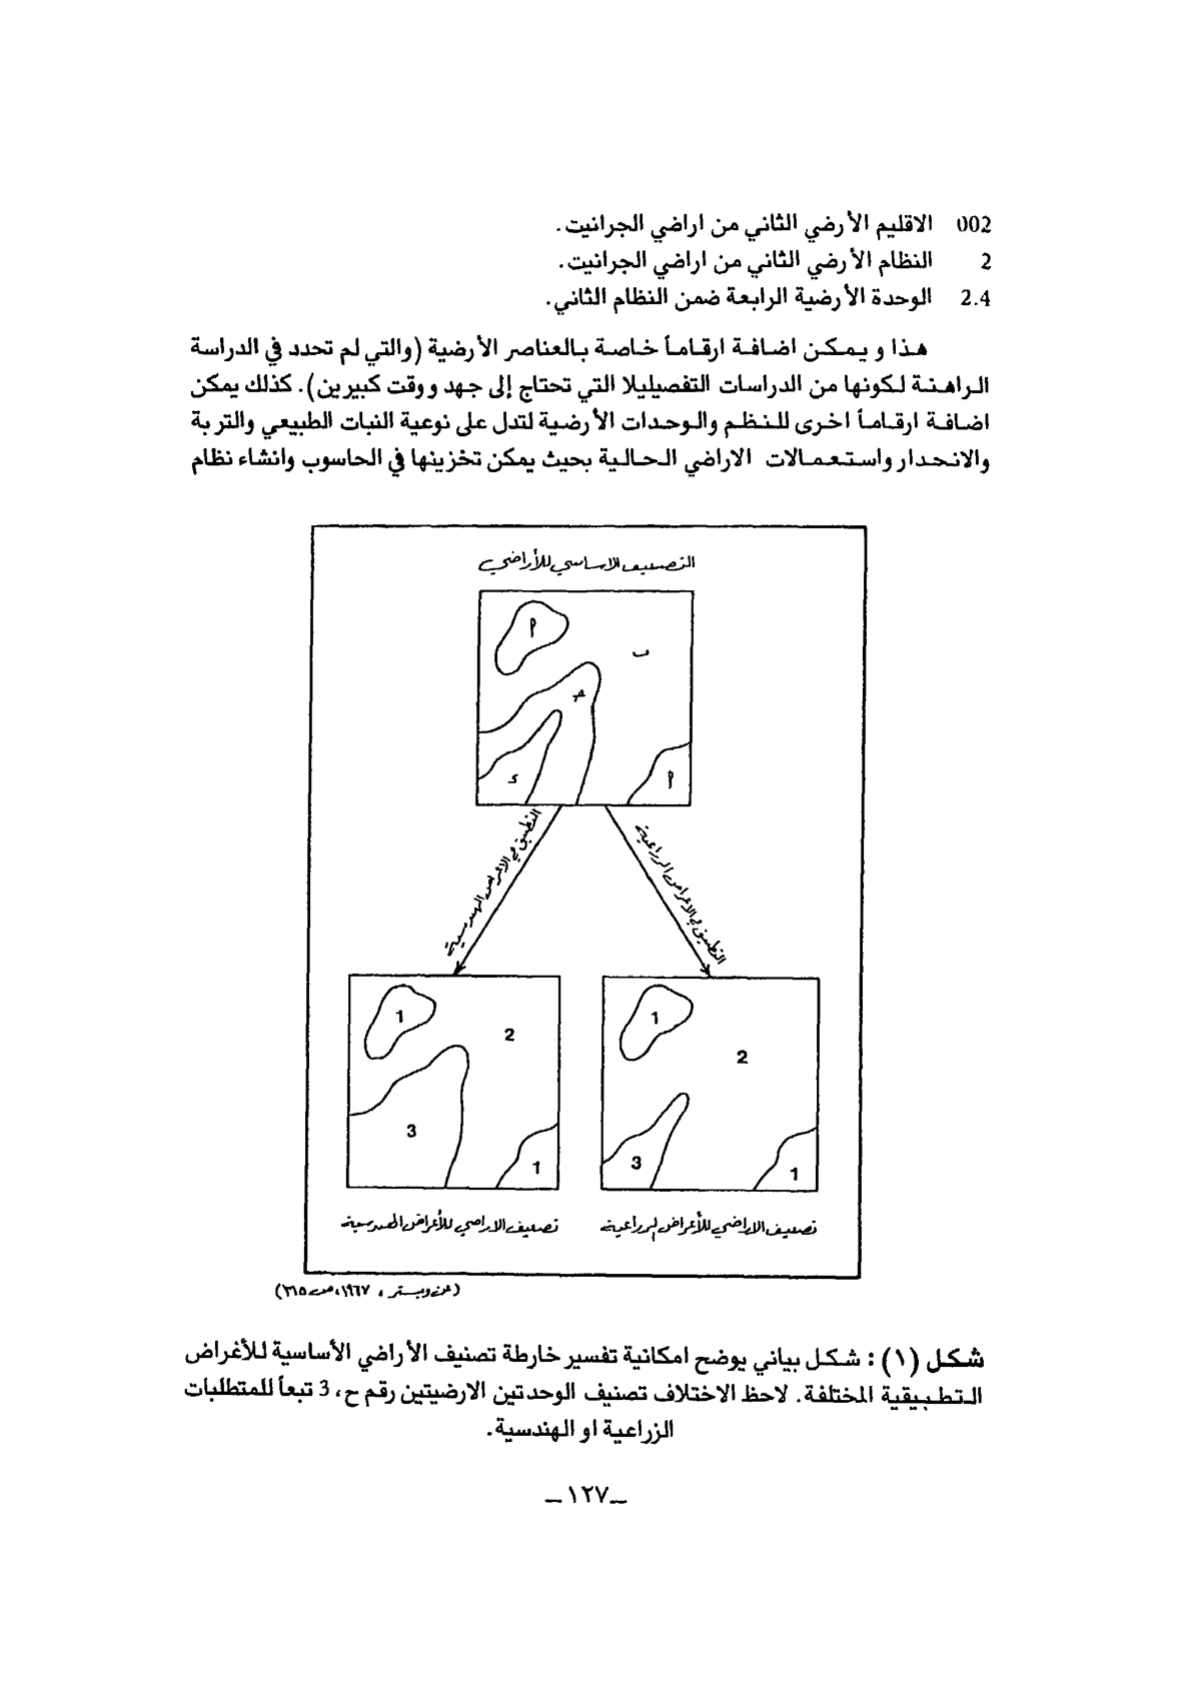 002 الاقليم الأرضي الثاني من اراضي الجرانيت.
2 النظام الأرضي الثاني من اراضي الجرانيت.
2.4 الوحدة الأرضية الرابعة ضمن النظام الثاني.
هذا ويمكن اضافة ارقاماً خاصة بالعناصر الأرضية (والتي لم تحدد في الدراسة
الراهنة لكونها من الدراسات التفصيليلا التي تحتاج إلى جهد ووقت كبيرين). كذلك يمكن
اضافة ارقاماً اخرى للنظم والوحدات الأرضية لتدل على نوعية النبات الطبيعي والتربة
والانحدار واستعمالات الاراضي الحالية بحيث يمكن تخزينها في الحاسوب وانشاء نظام
التصنيف الاساسي للأراضي
أ
ب
جـ
د
أ
التطبيق في الاغراض الهندسية
التطبيق في الاغراض الزراعية
1
2
3
1
1
2
3
1
تصنيف الاراضي للأغراض الهندسية
تصنيف الاراضي للأغراض الزراعية
(عن وبستر، ١٩٦٧، ص ٣١٥)
شكل (١): شكل بياني يوضح امكانية تفسير خارطة تصنيف الأراضي الأساسية للأغراض
التطبيقية المختلفة. لاحظ الاختلاف تصنيف الوحدتين الارضيتين رقم ح، 3 تبعاً للمتطلبات
الزراعية او الهندسية.
ـ ١٢٧ ـ